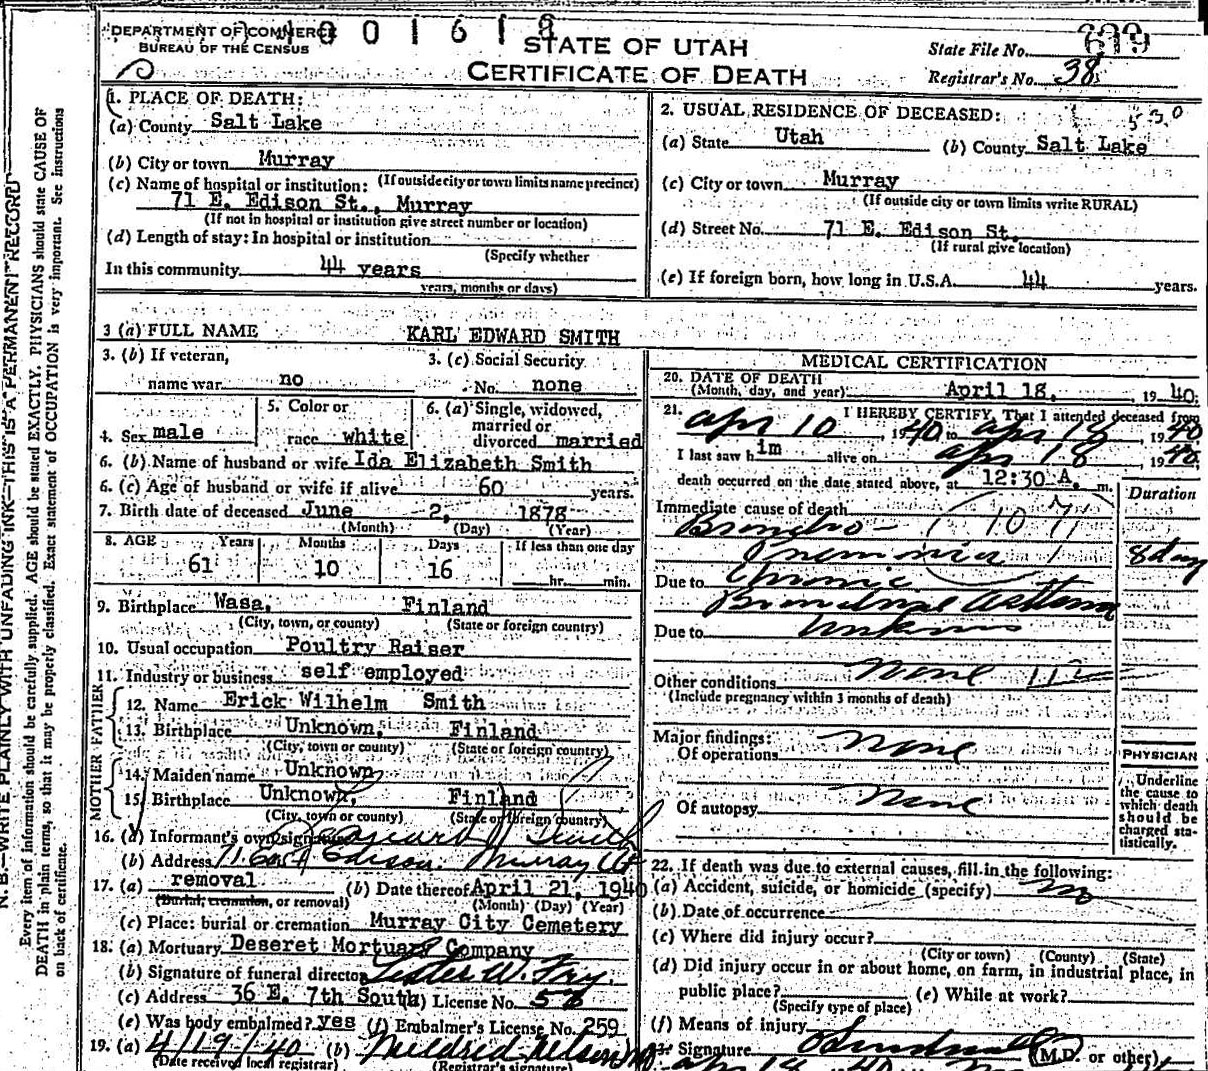 DEPARTMENT OF COMMERCE
BUREAU OF THE CENSUS
0 0 1 6 1 8
STATE OF UTAH
CERTIFICATE OF DEATH
State File No. 699
Registrar's No. 38
1. PLACE OF DEATH:
(a) County Salt Lake
(b) City or town Murray
(c) Name of hospital or institution: (If outside city or town limits name precinct)
71 E. Edison St., Murray
(If not in hospital or institution give street number or location)
(d) Length of stay: In hospital or institution
(Specify whether
In this community 44 years
years, months or days)
2. USUAL RESIDENCE OF DECEASED:
530
(a) State Utah (b) County Salt Lake
(c) City or town Murray
(If outside city or town limits write RURAL)
(d) Street No. 71 E. Edison St.
(If rural give location)
(e) If foreign born, how long in U.S.A. 44 years.
3 (a) FULL NAME KARL EDWARD SMITH
3. (b) If veteran,
name war no
3. (c) Social Security
No. none
4. Sex male
5. Color or
race white
6. (a) Single, widowed,
married or
divorced married
6. (b) Name of husband or wife Ida Elizabeth Smith
6. (c) Age of husband or wife if alive 60 years.
7. Birth date of deceased June 2, 1878
(Month) (Day) (Year)
8. AGE Years Months Days If less than one day
61 10 16 hr. min.
9. Birthplace Wasa, Finland
(City, town, or county) (State or foreign country)
10. Usual occupation Poultry Raiser
11. Industry or business self employed
FATHER
12. Name Erick Wilhelm Smith
13. Birthplace Unknown, Finland
(City, town or county) (State or foreign country)
MOTHER
14. Maiden name Unknown
15. Birthplace Unknown, Finland
(City, town or county) (State or foreign country)
16. (a) Informant's own signature Smith
(b) Address 71 East Edison. Murray Ut
17. (a) removal (b) Date thereof April 21, 1940
(Burial, cremation, or removal) (Month) (Day) (Year)
(c) Place: burial or cremation Murray City Cemetery
18. (a) Mortuary Deseret Mortuary Company
(b) Signature of funeral director Lester W. Fay.
(c) Address 36 E. 7th South (d) License No.
(e) Was body embalmed? yes (f) Embalmer's License No. 259
19. (a) 4/19/40 (b) Mildred Nelson
(Date received local registrar) (Registrar's signature)
MEDICAL CERTIFICATION
20. DATE OF DEATH
(Month, day, and year) April 18, 1940.
21. I HEREBY CERTIFY, That I attended deceased from
Apr 10, 1940 to Apr 18, 1940
I last saw him alive on Apr 18 1940
death occurred on the date stated above, at 12:30 A. m.
Duration
Immediate cause of death 107
Broncho-
Pneumonia 8 day
Due to Chronic
Bronchial Asthma
Due to Unknown
Other conditions None 112
(Include pregnancy within 3 months of death)
Major findings:
Of operations None
Of autopsy None
PHYSICIAN
Underline
the cause to
which death
should be
charged sta-
tistically.
22. If death was due to external causes, fill in the following:
(a) Accident, suicide, or homicide (specify) no
(b) Date of occurrence
(c) Where did injury occur?
(City or town) (County) (State)
(d) Did injury occur in or about home, on farm, in industrial place, in
public place? (e) While at work?
(Specify type of place)
(f) Means of injury
Signature (M.D. or other)
Apr 18 40
N. B.—WRITE PLAINLY WITH UNFADING INK—THIS IS A PERMANENT RECORD
Every item of information should be carefully supplied. AGE should be stated EXACTLY. PHYSICIANS should state CAUSE OF
DEATH in plain terms, so that it may be properly classified. Exact statement of OCCUPATION is very important. See instructions
on back of certificate.